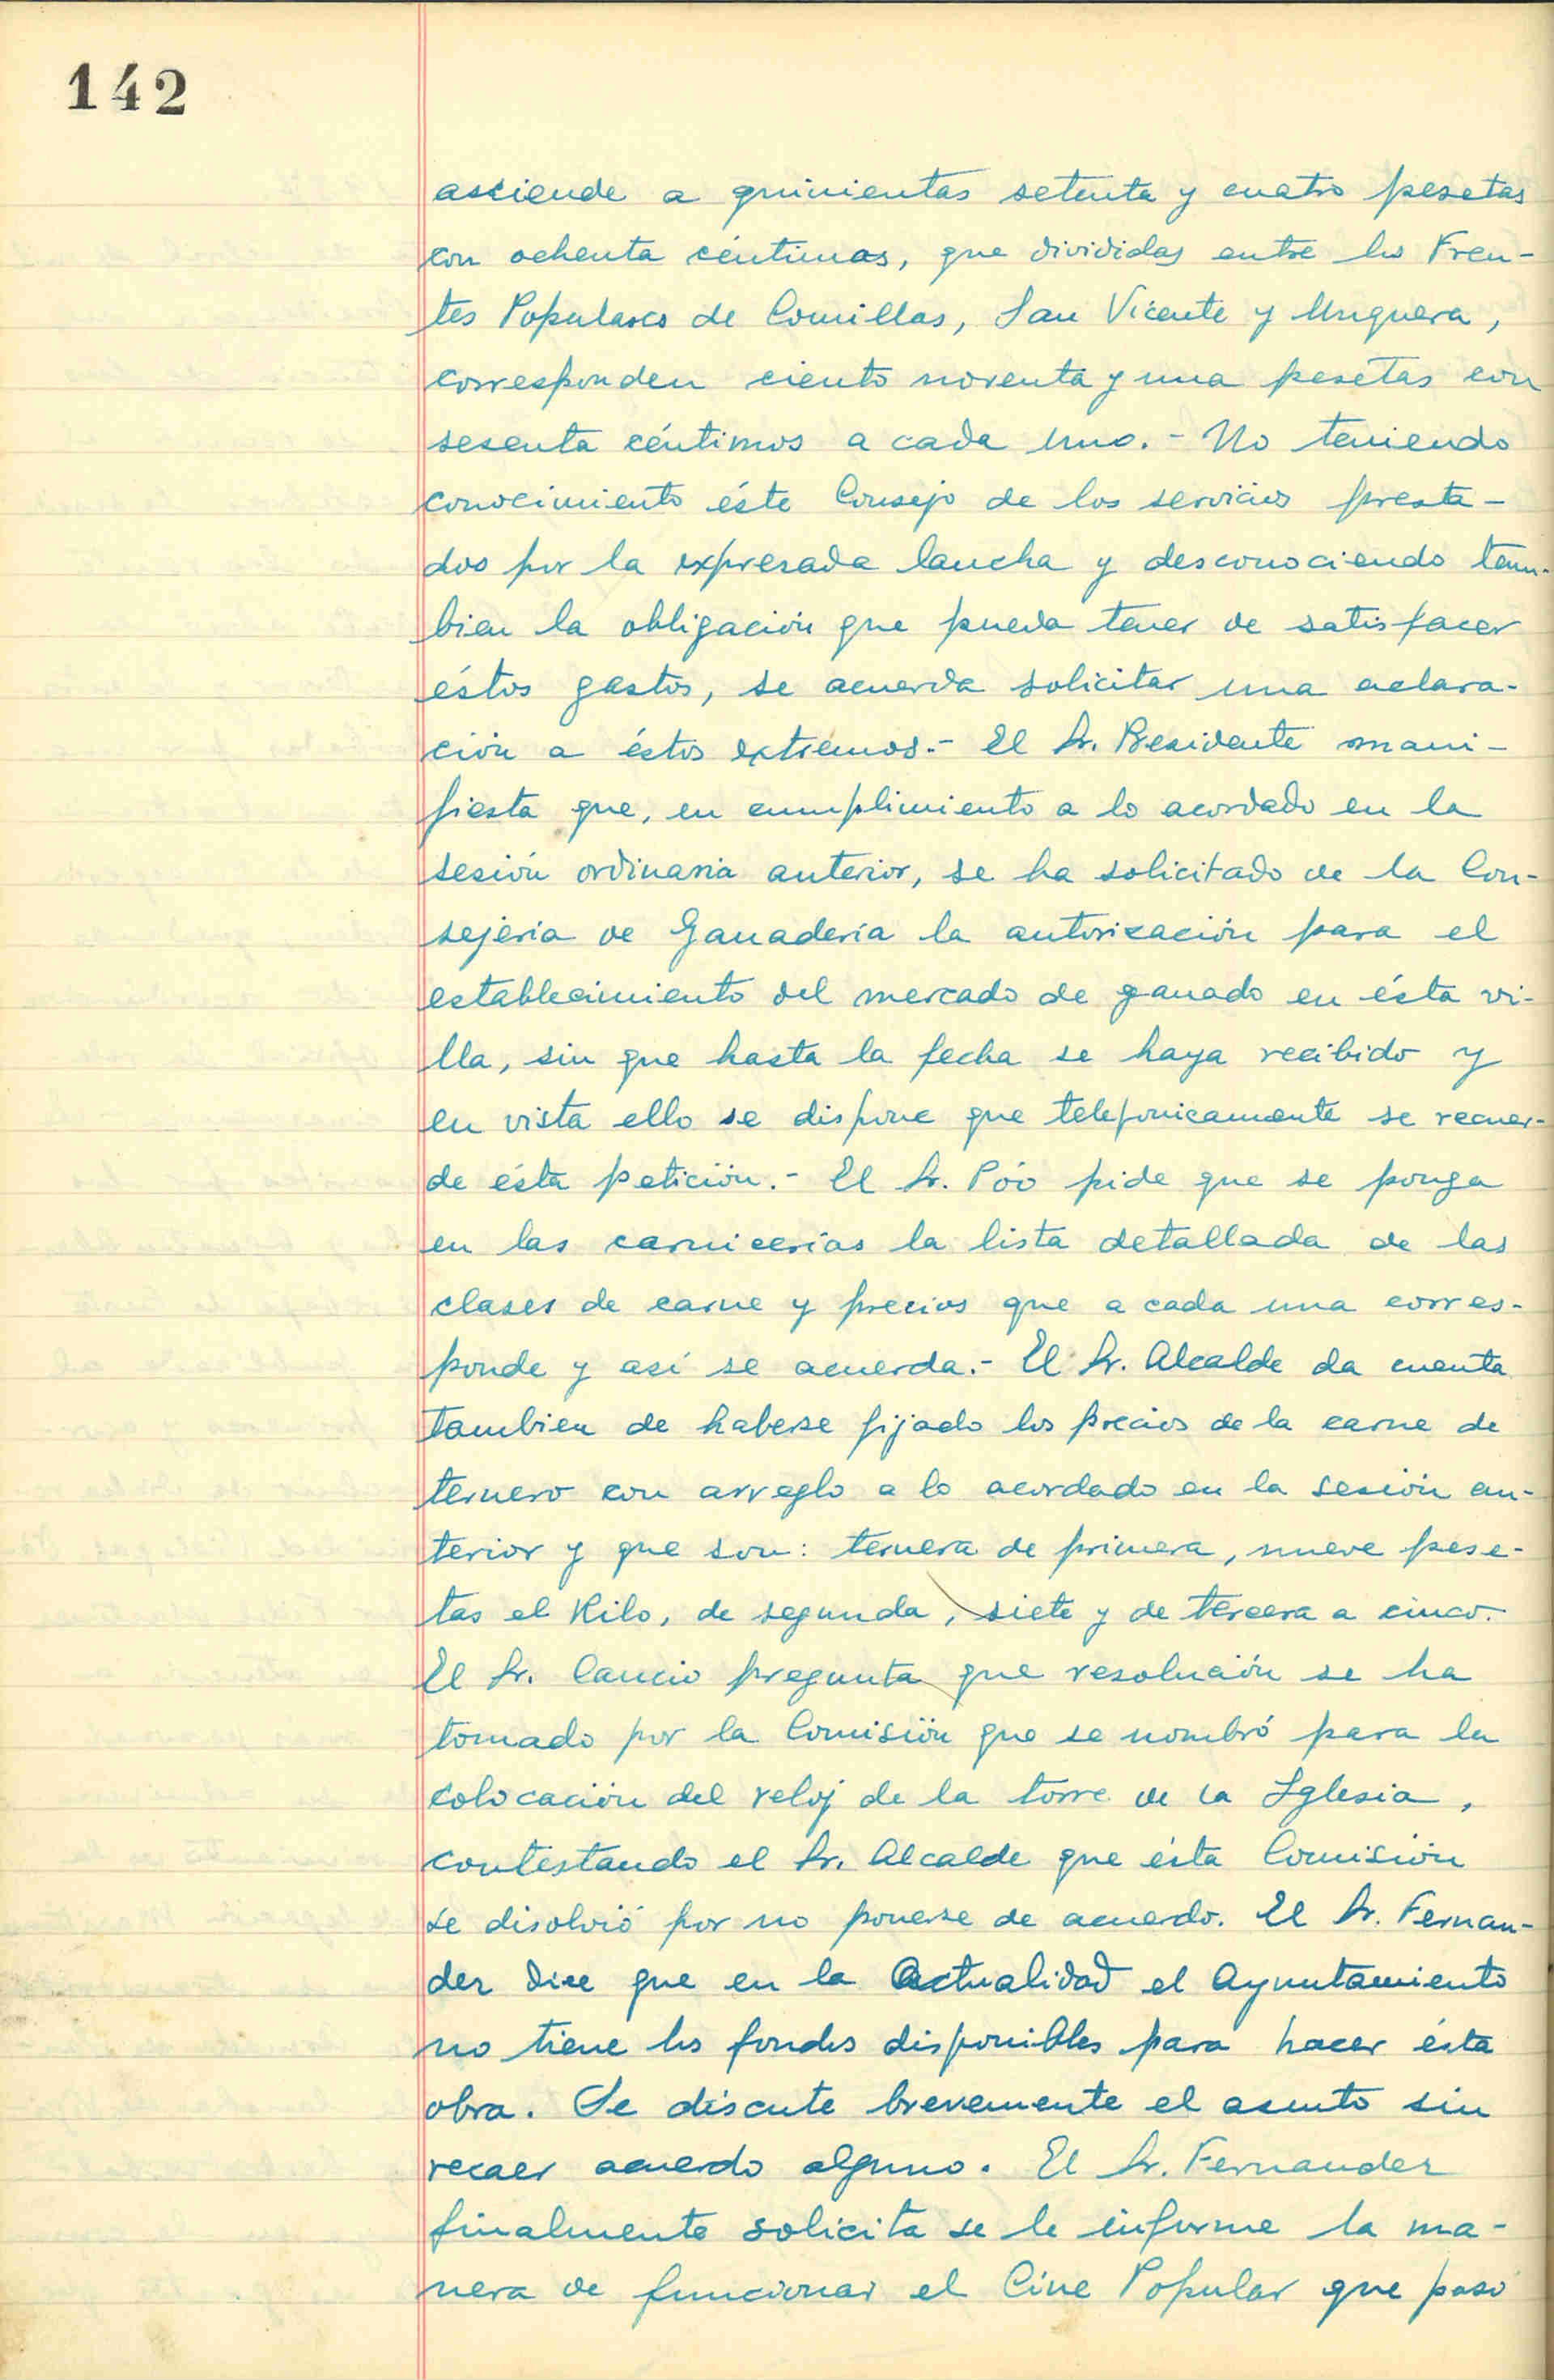 142
asciende a quinientas setenta y cuatro pesetas
con ochenta céntimas, que divididas entre los Fren-
tes Populares de Comillas, San Vicente y Unquera,
corresponden ciento noventa y una pesetas con
sesenta céntimos a cada uno.- No teniendo
conocimiento éste Consejo de los servicios presta-
dos por la expresada lancha y desconociendo tam-
bien la obligación que pueda tener de satisfacer
éstos gastos, se acuerda solicitar una aclara-
ción a éstos extremos.- El Sr. Presidente mani-
fiesta que, en cumplimiento a lo acordado en la
sesión ordinaria anterior, se ha solicitado de la Con-
sejeria de Ganadería la autorización para el
establecimiento del mercado de ganado en ésta vi-
lla, sin que hasta la fecha se haya recibido y
en vista ello se dispone que telefonicamente se recuer-
de ésta petición.- El Sr. Póo pide que se ponga
en las carnicerías la lista detallada de las
clases de carne y precios que a cada una corres-
ponde y así se acuerda.- El Sr. Alcalde da cuenta
tambien de haberse fijado los precios de la carne de
ternero con arreglo a lo acordado en la sesión an-
terior y que son: ternera de primera, nueve pese-
tas el Kilo, de segunda, siete y de tercera a cinco.-
El Sr. Cancio pregunta que resolución se ha
tomado por la Comisión que se nombró para la
colocación del reloj de la torre de la Iglesia,
contestando el Sr. Alcalde que ésta Comisión
se disolvió por no ponerse de acuerdo. El Sr. Fernan-
dez dice que en la Actualidad el Ayuntamiento
no tiene los fondos disponibles para hacer ésta
obra. Se discute brevemente el asunto sin
recaer acuerdo alguno. El Sr. Fernandez
finalmente solicita se le informe la ma-
nera de funcionar el Cine Popular que paso